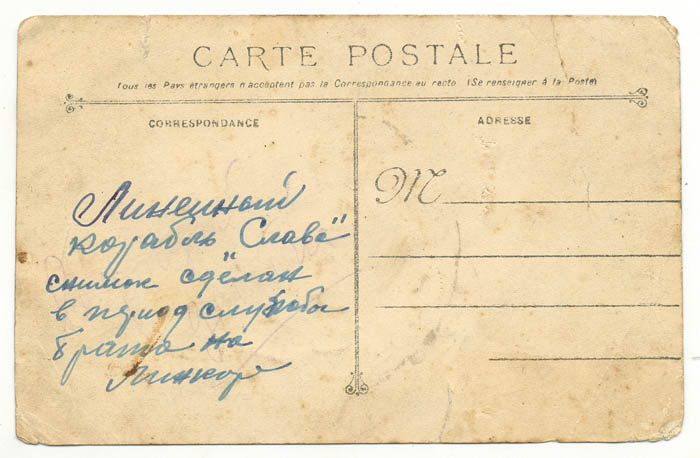 CARTE POSTALE
Tous les Pays étrangers n'acceptent pas la Correspondance au recto (Se renseigner à la Poste)
CORRESPONDANCE
ADRESSE
M
Линейный
корабль "Слава"
снимок сделан
в период службы
брата на
Линкоре